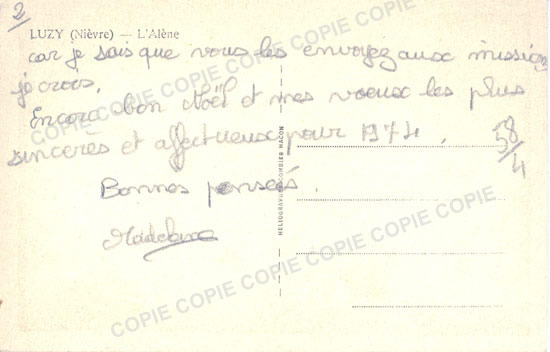 2
LUZY (Nièvre) — L'Alène
car je sais que vous les envoyez aux mission
je crois.
Encore bon Noël et mes voeux les plus
sincères et affectueux pour 1974.
58/4
Bonnes pensées.
Madeleine
HELIOGRAVURE COMBIER MACON
COPIE COPIE COPIE COPIE COPIE COPIE
COPIE COPIE COPIE COPIE COPIE COPIE